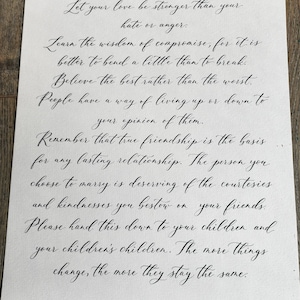 Let your love be stronger than your
hate or anger.
Learn the wisdom of compromise, for it is
better to bend a little than to break.
Believe the best rather than the worst.
People have a way of living up or down to
your opinion of them.
Remember that true friendship is the basis
for any lasting relationship. The person you
choose to marry is deserving of the courtesies
and kindnesses you bestow on your friends.
Please hand this down to your children and
your children's children. The more things
change, the more they stay the same.